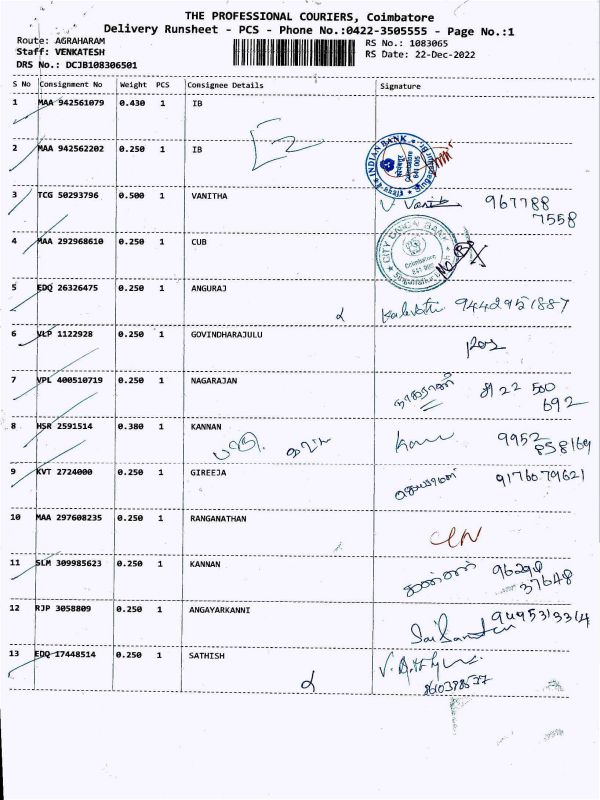 THE PROFESSIONAL COURIERS, Coimbatore
Delivery Runsheet - PCS - Phone No.:0422-3505555 - Page No.:1
Route: AGRAHARAM RS No.: 1083065
Staff: VENKATESH RS Date: 22-Dec-2022
DRS No.: DCJB108306501
S No Consignment No Weight PCS Consignee Details Signature
1 MAA 942561079 0.430 1 IB
2 MAA 942562202 0.250 1 IB
INDIAN BANK
Coimbatore
641 005
3 TCG 50293796 0.500 1 VANITHA 967788
7558
4 MAA 292968610 0.250 1 CUB
CITY UNION BANK
Coimbatore
5 EDQ 26326475 0.250 1 ANGURAJ 9442951887
6 VLP 1122928 0.250 1 GOVINDHARAJULU
7 VPL 400510719 0.250 1 NAGARAJAN 22 500
692
8 HSR 2591514 0.380 1 KANNAN 9952
858169
9 KVT 2724000 0.250 1 GIREEJA 9176079621
10 MAA 297608235 0.250 1 RANGANATHAN
11 SLM 309985623 0.250 1 KANNAN 96294
37648
12 RJP 3058809 0.250 1 ANGAYARKANNI
13 EDQ 17448514 0.250 1 SATHISH